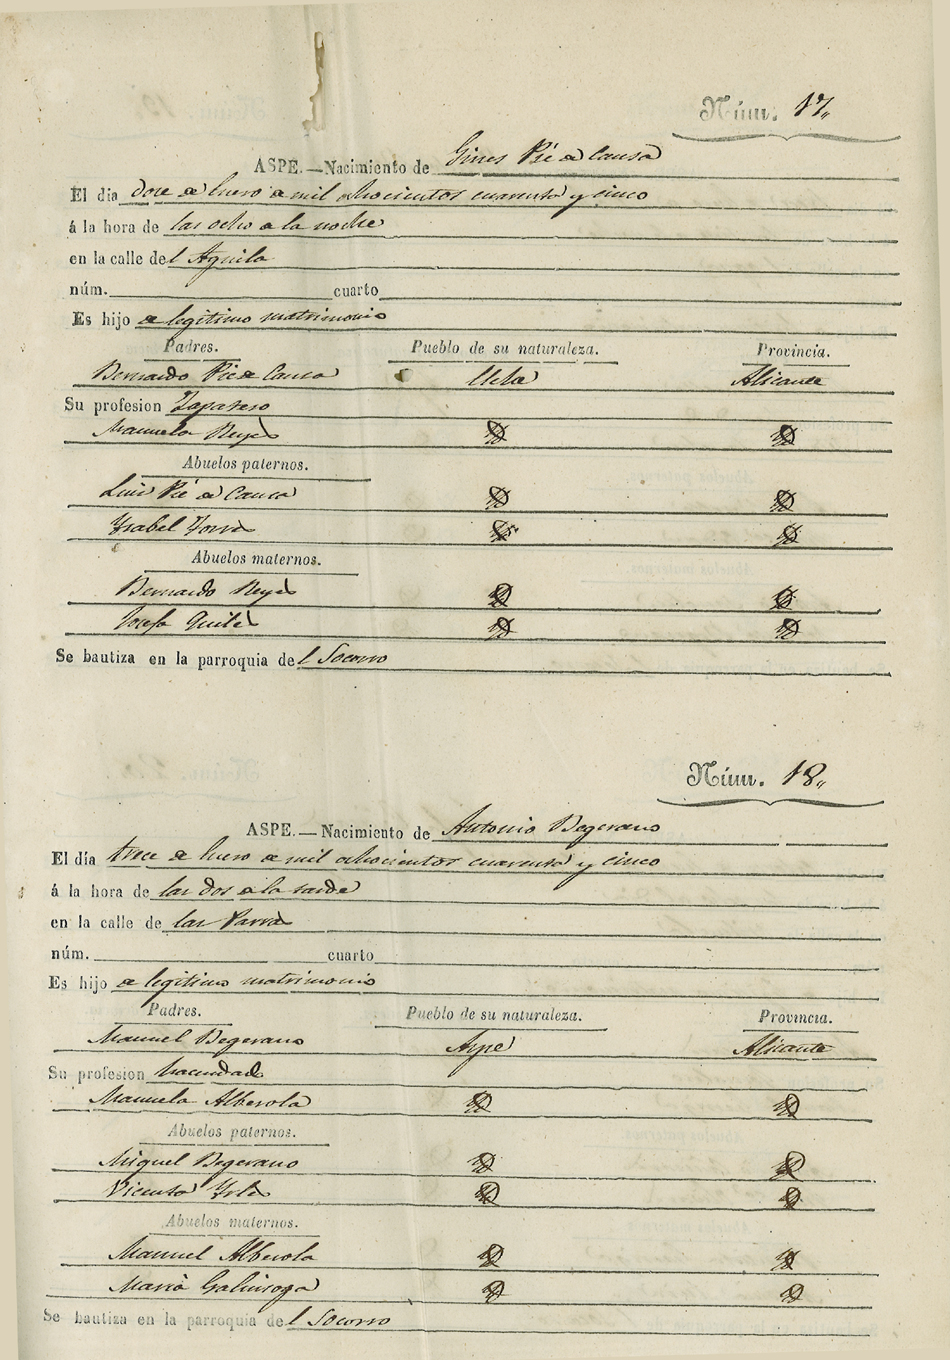 Núm. 17,,
ASPE.—Nacimiento de Gines Pié de Causa
El dia doce de Enero de mil ochocientos cuarenta y cinco
á la hora de las ocho de la noche
en la calle del Aguila
núm. cuarto
Es hijo de legitimo matrimonio
Padres. Pueblo de su naturaleza. Provincia.
Bernardo Pie de Causa Elche Alicante
Su profesion Zapatero
Manuela Reyes
Abuelos paternos.
Luis Pié de Causa
Ysabel Torres
Abuelos maternos.
Bernardo Reyes
Josefa Quiles
Se bautiza en la parroquia del Socorro
Núm. 18,,
ASPE.—Nacimiento de Antonio Begerano
El día trece de Enero de mil ochocientos cuarenta y cinco
á la hora de las dos de la tarde
en la calle de las Parras
núm. cuarto
Es hijo de legitimo matrimonio
Padres. Pueblo de su naturaleza. Provincia.
Manuel Begerano Aspe Alicante
Su profesion hacendado
Manuela Alberola
Abuelos paternos.
Miguel Begerano
Vicenta Yrles
Abuelos maternos.
Manuel Alberola
Maria Galinsoga
Se bautiza en la parroquia del Socorro